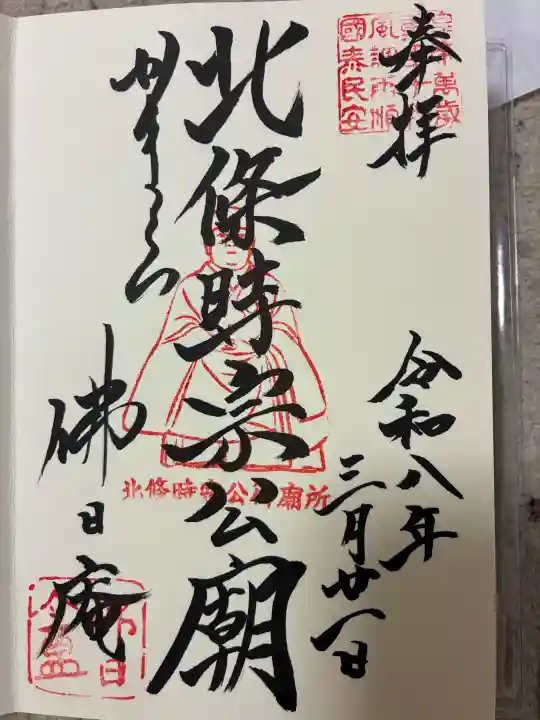 奉拝
令和八年
三月廿一日
北條時宗公廟
かまくら
佛日庵
國泰民安
風調雨順
萬歳
北條時宗公御廟所